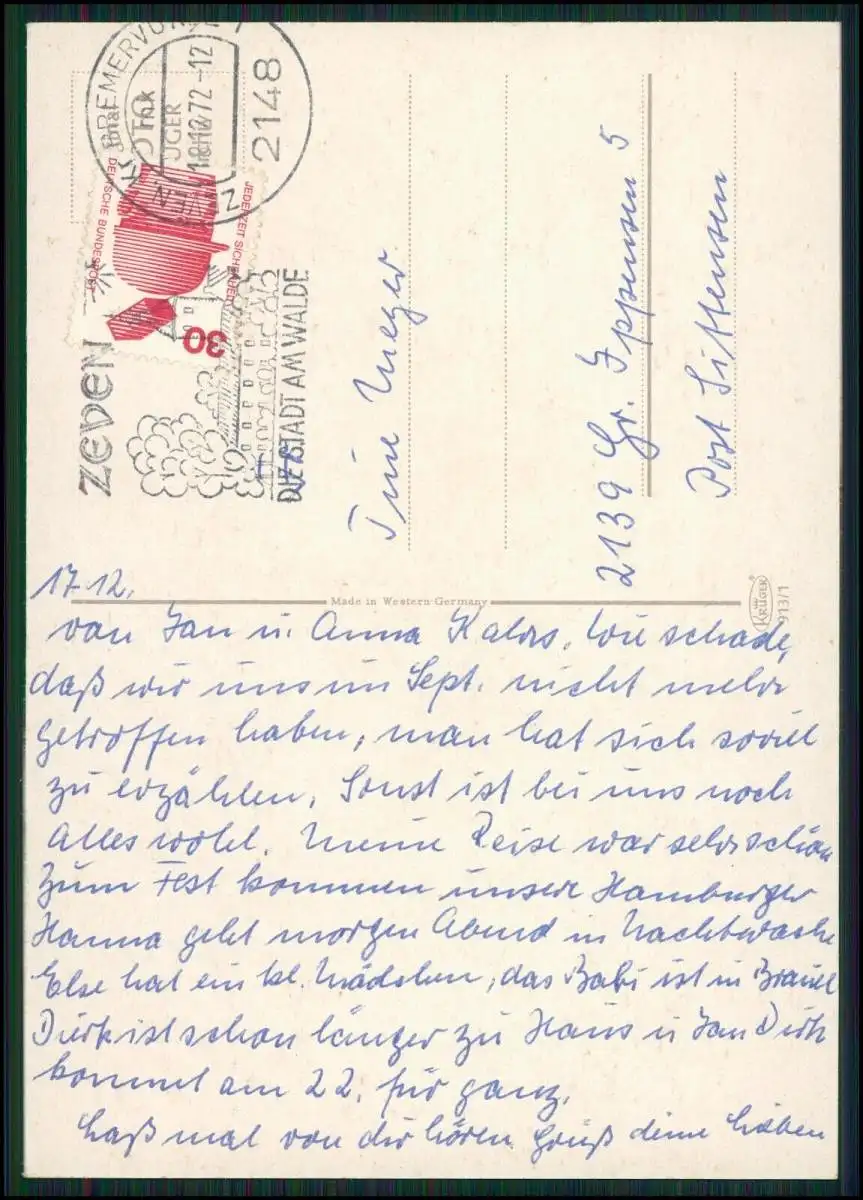 BREMERVÖRDE 1
18.12.72-12
2148
ZEVEN
DIE STADT AM WALDE
DEUTSCHE BUNDESPOST
JEDERZEIT SICHERHEIT
30
Tine Meyer
2139 Gr. Ippensen 5
Post Sittensen
Made in Western-Germany
KRÜGER
913/1
17.12.
von Jan u. Anna Kahrs. Wie schade,
daß wir uns im Sept. nicht mehr
getroffen haben, man hat sich soviel
zu erzählen. Sonst ist bei uns noch
Alles wohl. Meine Reise war sehr schön
Zum Fest kommen unsere Hamburger
Hanna geht morgen Abend in Nachtwache
Else hat ein kl. Mädchen, das Babi ist in Brauel
Dirk ist schon länger zu Haus u Jan Dirk
kommt am 22. für ganz.
Laß mal von dir hören Grüß deine Lieben